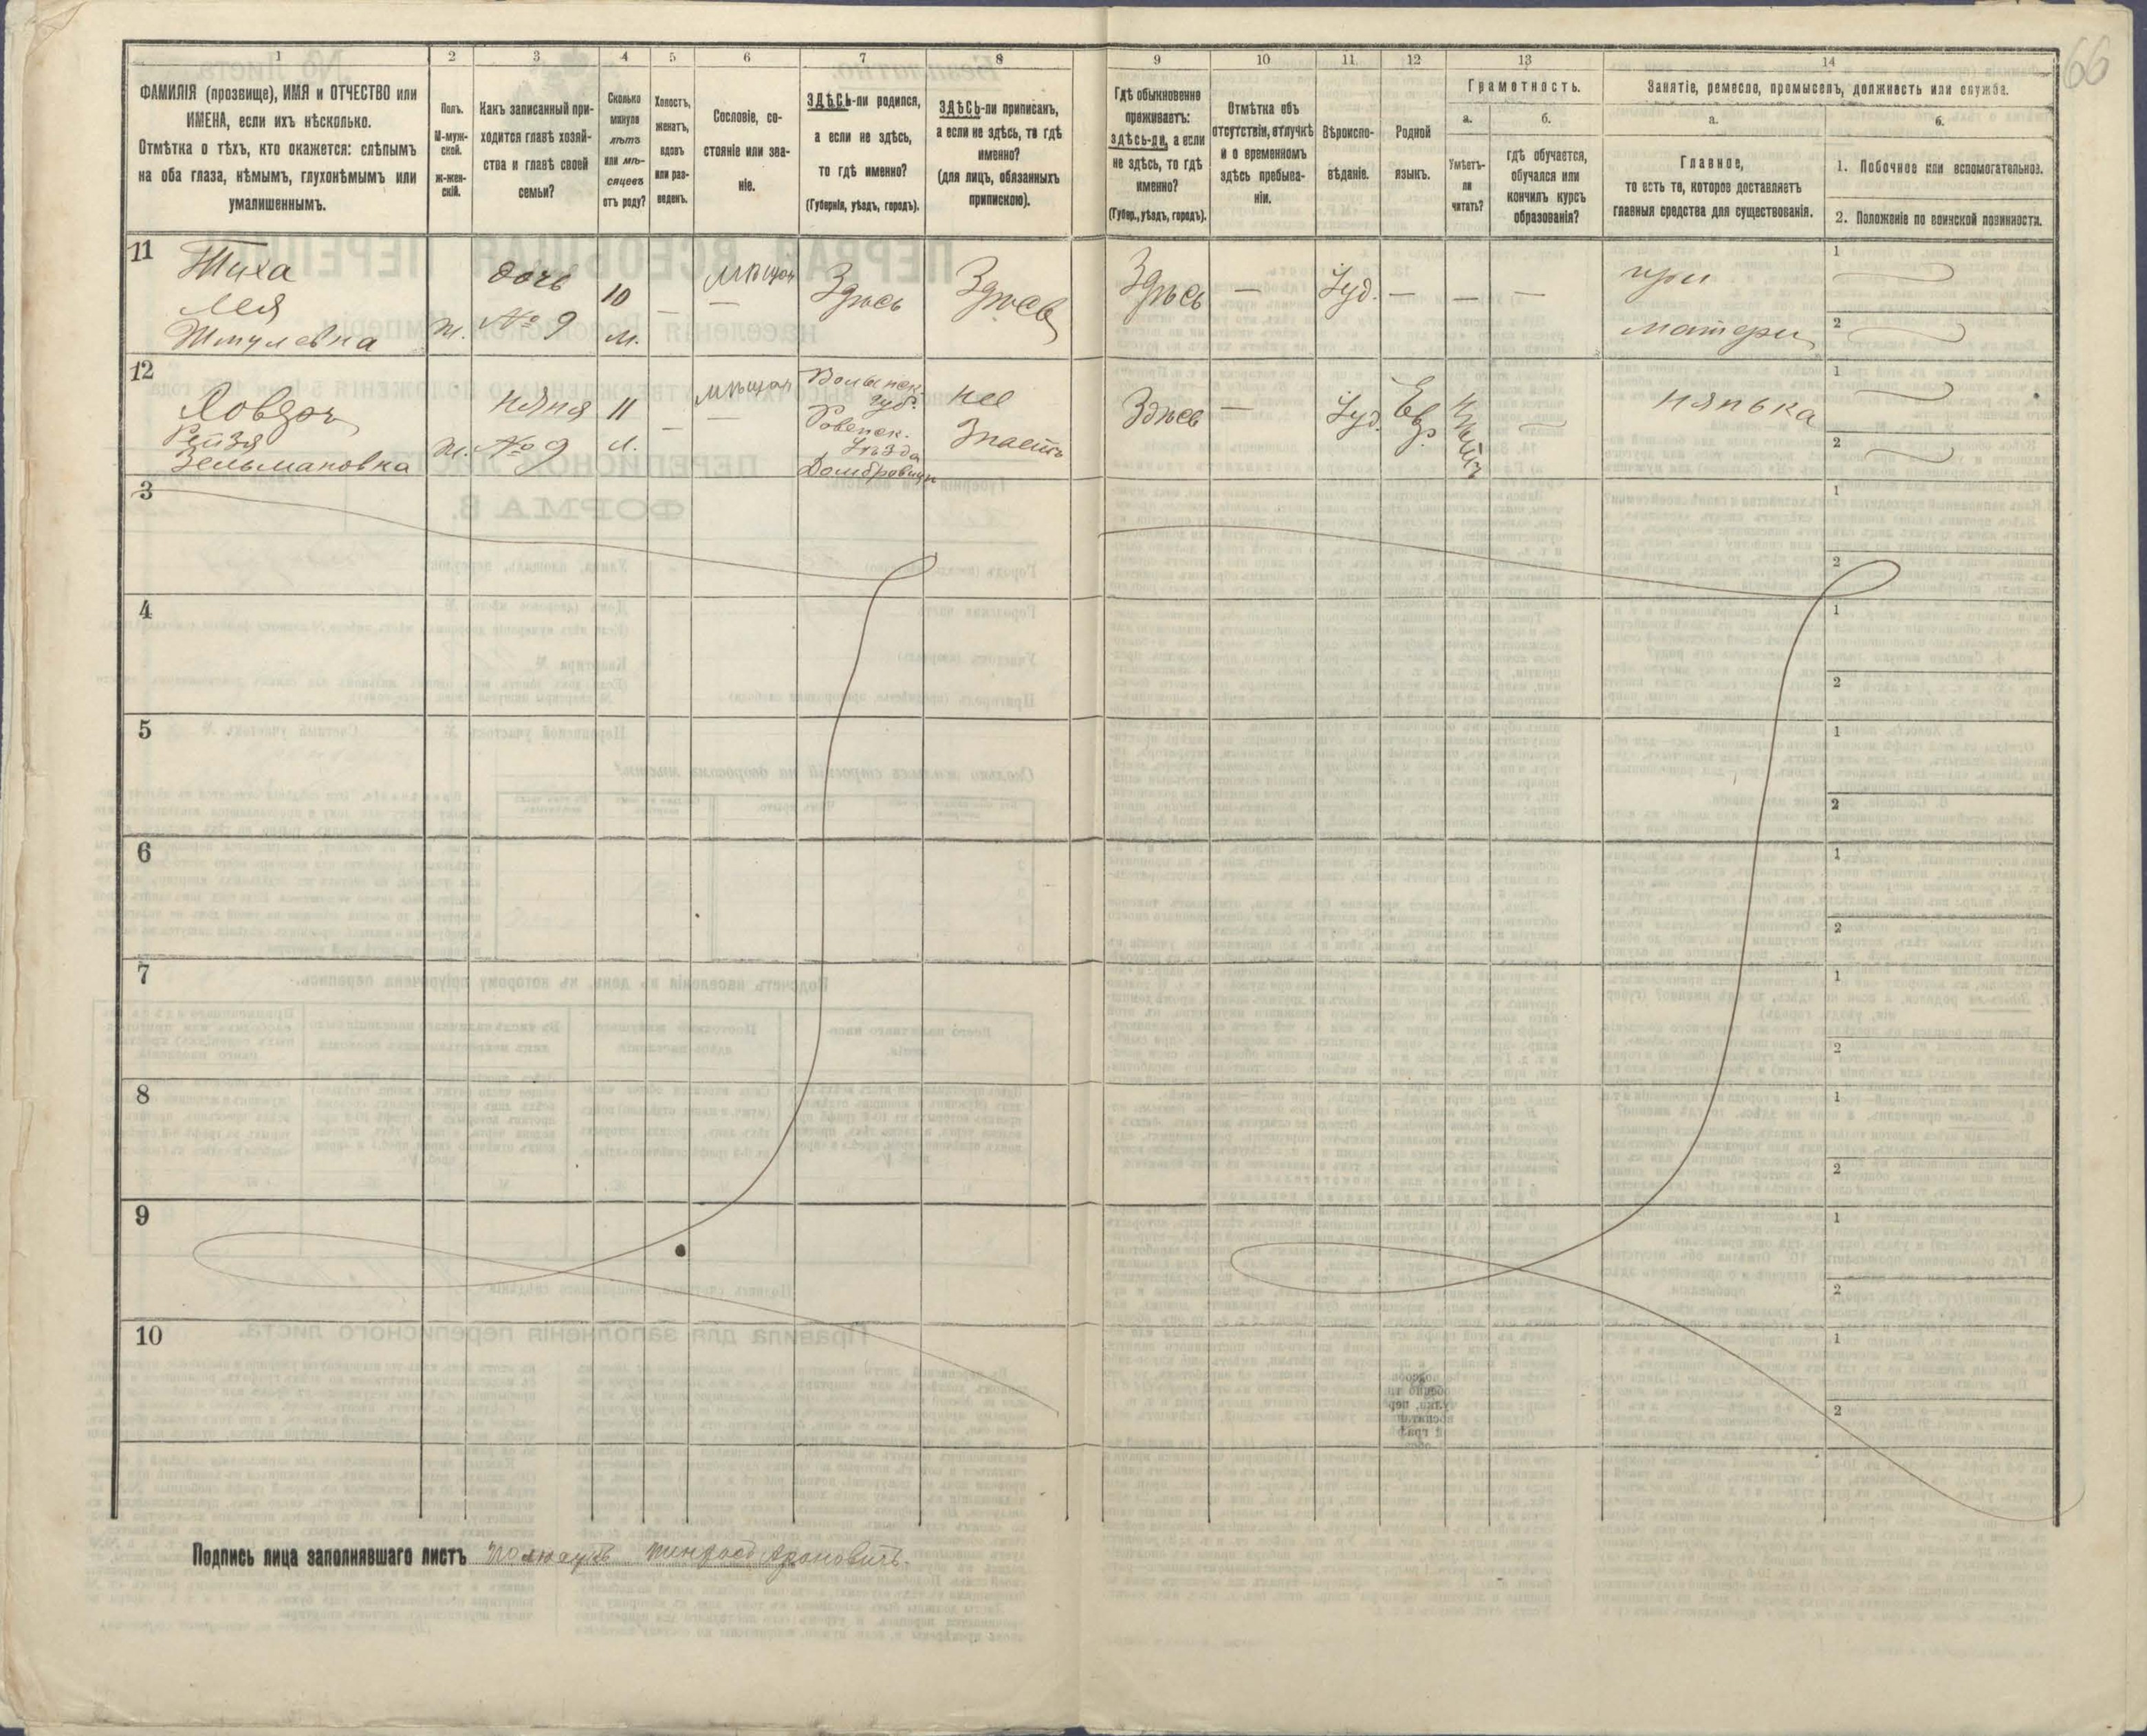 66
1
2
3
4
5
6
7
8
9
10
11
12
13
14
ФАМИЛІЯ (прозвище), ИМЯ и ОТЧЕСТВО или
ИМЕНА, если ихъ нѣсколько.
Отмѣтка о тѣхъ, кто окажется: слѣпымъ
на оба глаза, нѣмымъ, глухонѣмымъ или
умалишеннымъ.
Полъ.
М-муж-
ской.
Ж-жен-
скій.
Какъ записанный при-
ходится главѣ хозяй-
ства и главѣ своей
семьи?
Сколько
минуло
лѣтъ
или мѣ-
сяцевъ
отъ роду?
Холостъ,
женатъ,
вдовъ
или раз-
веденъ.
Сословіе, со-
стояніе или зва-
ніе.
ЗДѢСЬ-ли родился,
а если не здѣсь,
то гдѣ именно?
(Губернія, уѣздъ, городъ).
ЗДѢСЬ-ли приписанъ,
а если не здѣсь, то гдѣ
именно?
(для лицъ, обязанныхъ
припискою).
Гдѣ обыкновенно
проживаетъ:
здѣсь-ли, а если
не здѣсь, то гдѣ
именно?
(Губер., уѣздъ, городъ).
Отмѣтка объ
отсутствіи, отлучкѣ
и о временномъ
здѣсь пребыва-
ніи.
Вѣроиспо-
вѣданіе.
Родной
языкъ.
Грамотность.
а.
Умѣетъ-
ли
читать?
б.
гдѣ обучается,
обучался или
кончилъ курсъ
образованія?
Занятіе, ремесло, промыселъ, должность или служба.
а.
Главное,
то есть то, которое доставляетъ
главныя средства для существованія.
б.
1. Побочное или вспомогательное.
2. Положеніе по воинской повинности.
11
Лея
Шмулевна
ж.
дочь
№ 9
10
м.
—
мѣщан
—
Здѣсь
Здѣсь
Здѣсь
—
Іуд.
—
—
—
при
матери
1
2
12
Рейзя
Зельмановна
ж.
няня
№ 9
11
л.
—
мѣщан
—
Волынск.
губ.
Ровенск.
Уѣзда
Домбровицы
не
Знаетъ
Здѣсь
—
Іуд.
Евр.
—
нянька
1
2
3
1
2
4
1
2
5
1
2
6
1
2
7
1
2
8
1
2
9
1
2
10
1
2
Подпись лица заполнявшаго листъ